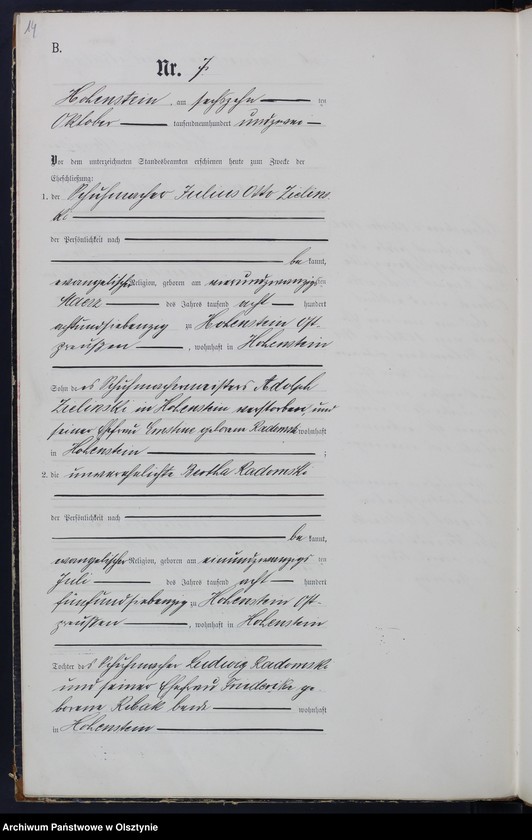 14
B.
Nr. 7
Hohenstein, am sechszehn ten
Oktober tausendneunhundert und zwei
Vor dem unterzeichneten Standesbeamten erschienen heute zum Zwecke der
Eheschließung:
1. der Schuhmacher Julius Otto Zielins
ki
der Persönlichkeit nach
be kannt,
evangelischer Religion, geboren am vierundzwanzigsten
März des Jahres tausend acht hundert
achtundsiebenzig zu Hohenstein Ost-
preußen, wohnhaft in Hohenstein
Sohn des Schuhmachermeisters Adolph
Zielinski in Hohenstein verstorben, und
seiner Ehefrau Ernstine geborene Radomski wohnhaft
in Hohenstein ;
2. die unverehelichte Bertha Radomski
der Persönlichkeit nach
be kannt,
evangelischer Religion, geboren am einundzwanzigs ten
Juli des Jahres tausend acht hundert
fünfundsiebenzig zu Hohenstein Ost-
preußen, wohnhaft in Hohenstein
Tochter des Schuhmacher Ludwig Radomski
und seiner Ehefrau Friederike ge-
borene Ribak beide wohnhaft
in Hohenstein
Archiwum Państwowe w Olsztynie